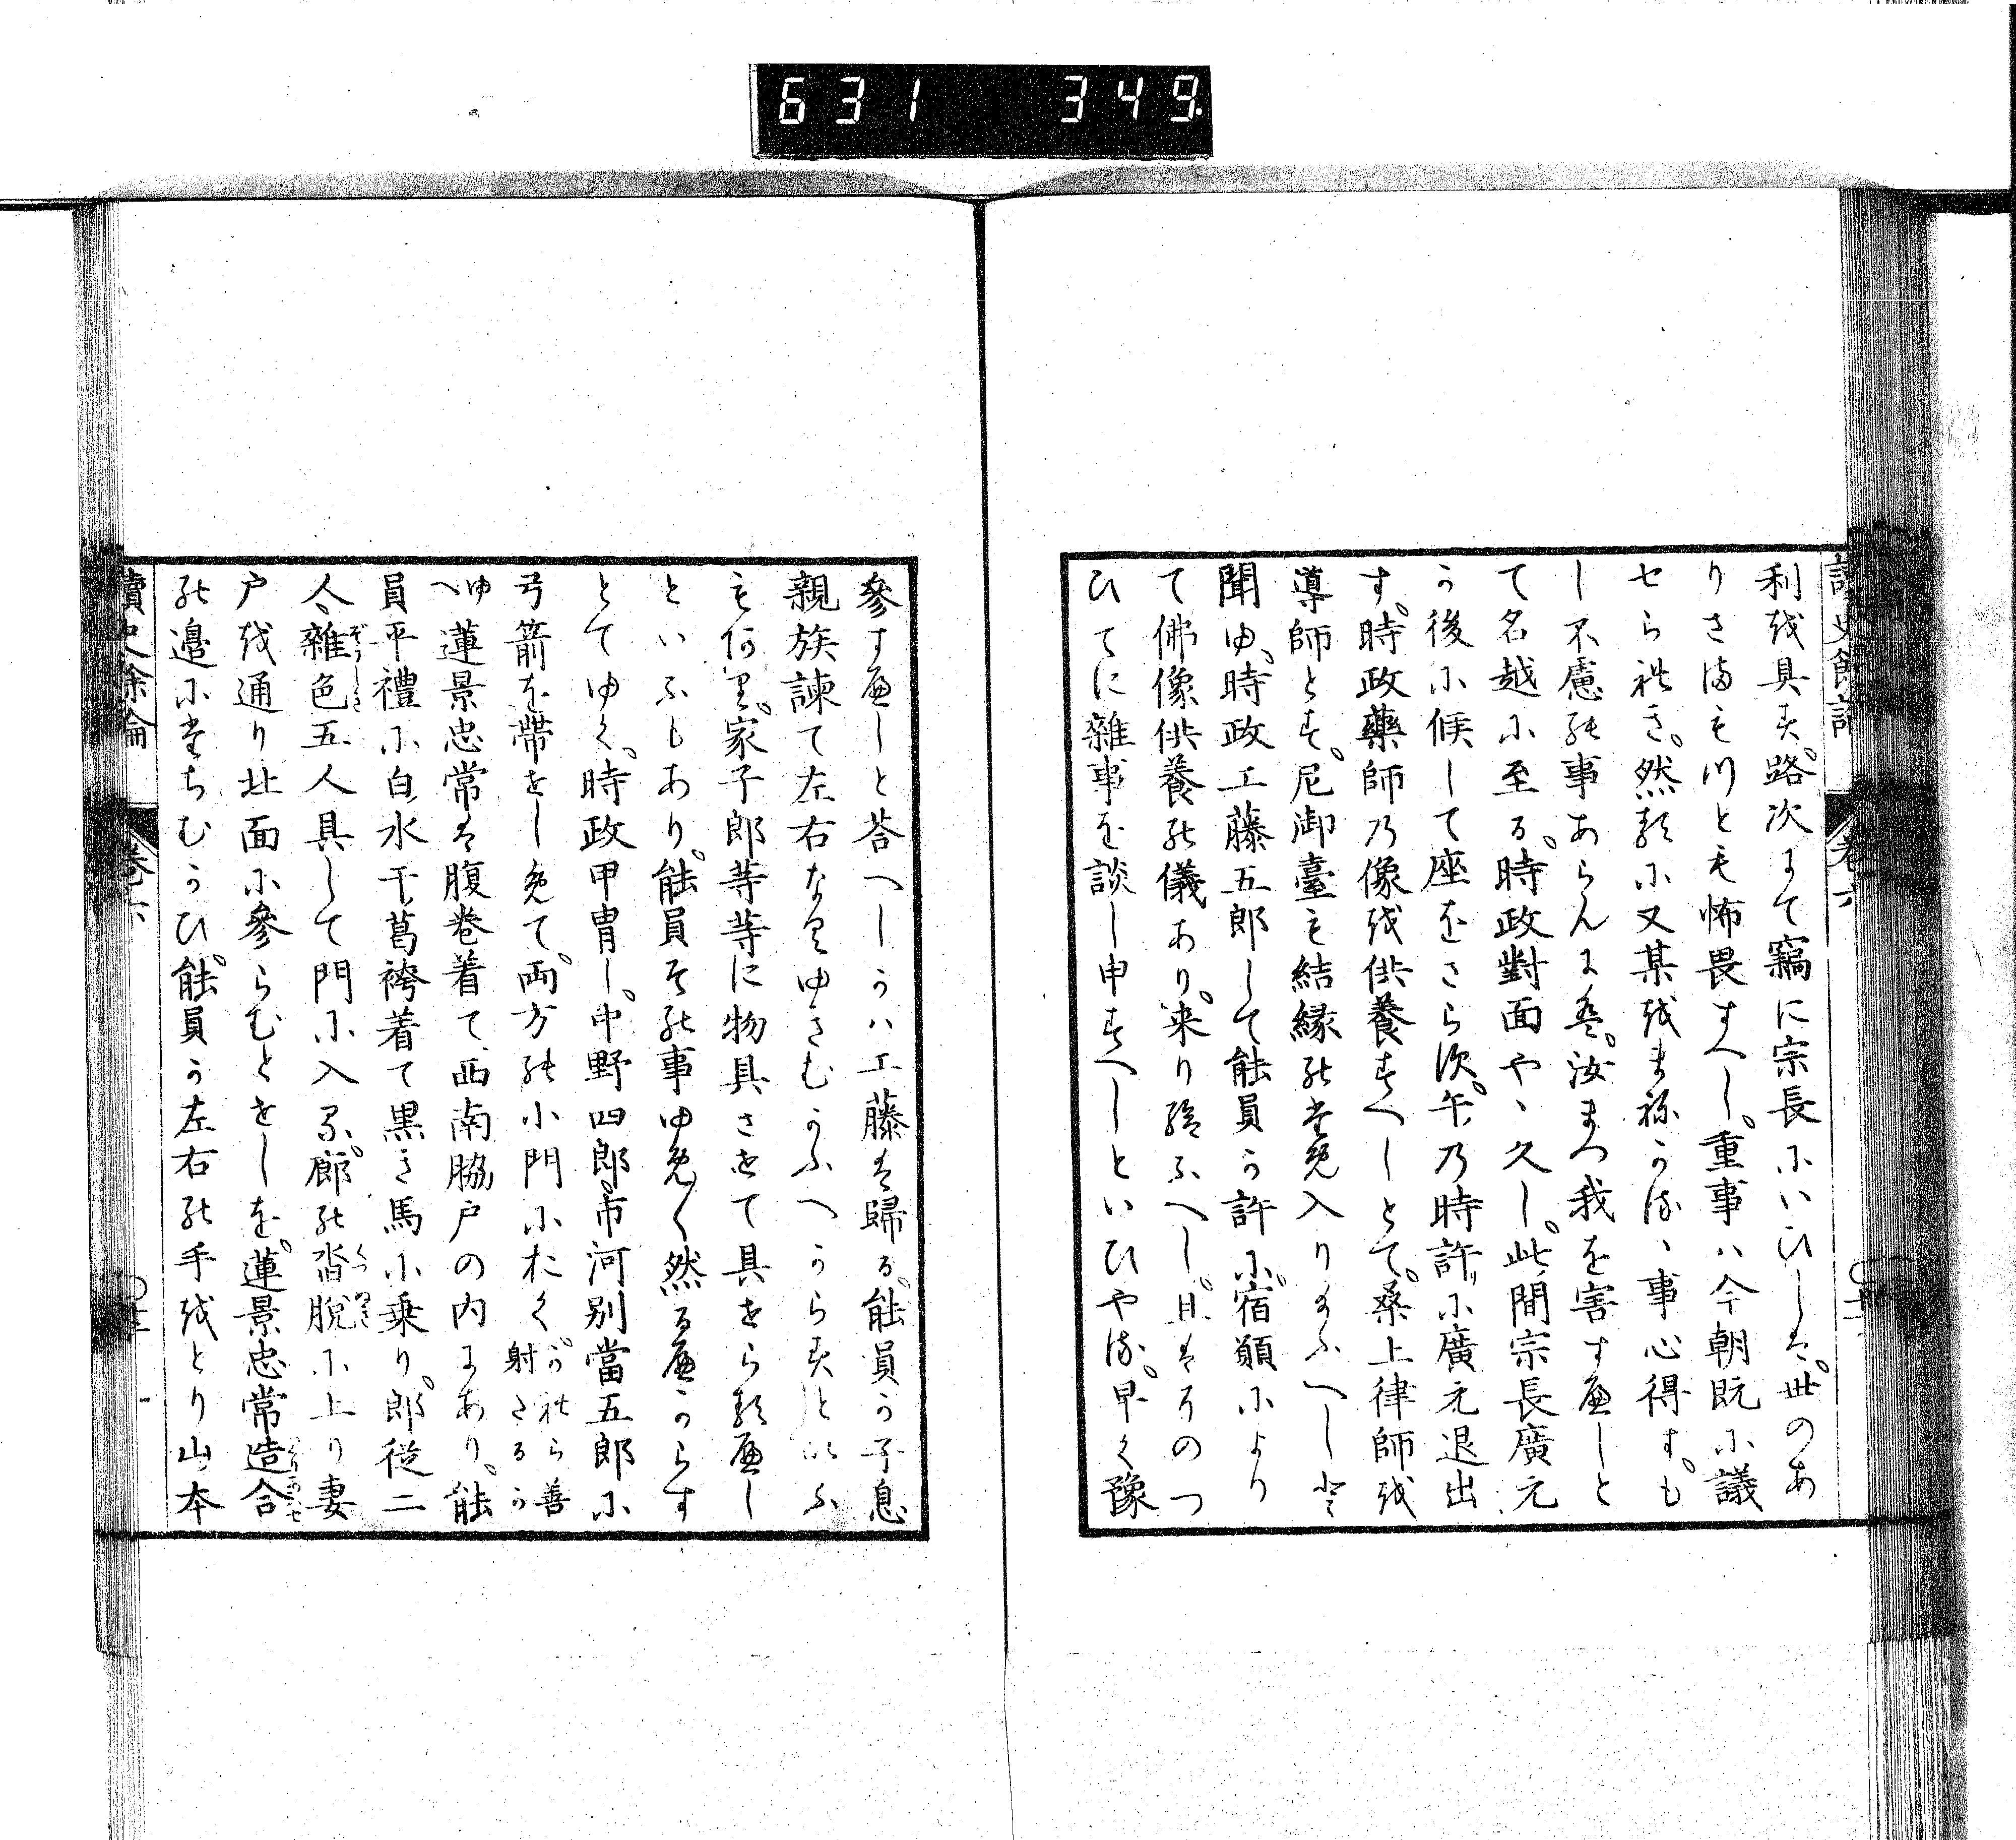 631 349
利を具す。路次にて竊に宗長にいひしは。世のあ
りさまもつとも怖畏すへし。重事ハ今朝既に議
せられき。然るに又某をまねかるゝ事心得す。も
し不慮の事あらんには。汝まつ我を害すへしと
て名越に至る。時政對面やゝ久し。此間宗長廣元
か後に候して座をさらす。午の時許に廣元退出
す。時政藥師の像を供養すへしとて。桑上律師を
導師とす。尼御臺も結縁のため入りまふへしと
聞ゆ。時政工藤五郎して能員か許に宿願により
て佛像供養の儀あり。来り給ふへし。且はそのつ
ひてに雜事を談し申すへしといひやる。早く豫
參すへしと荅へしかハ工藤は歸る。能員か子息
親族諫て左右なくゆきむかふへからすといふ
もあり。家子郎等等に物具させて具せらるへし
といふもあり。能員その事ゆめ〳〵然るへからす
とてゆく。時政甲冑し。中野四郎市河別當五郎に
弓箭を帶せしめて。両方の小門におく。かれら善射なるか
ゆへ蓮景忠常は腹巻着て西南脇戸の内にあり。能
員平禮に白水干葛袴着て黒き馬に乗り。郎従二
人雜色五人具して門に入る。廊の沓脱に上り妻
戸を通り北面に參らむとせしを。蓮景忠常造合
の邊にたちむかひ。能員か左右の手をとり山本
讀史餘論 卷六